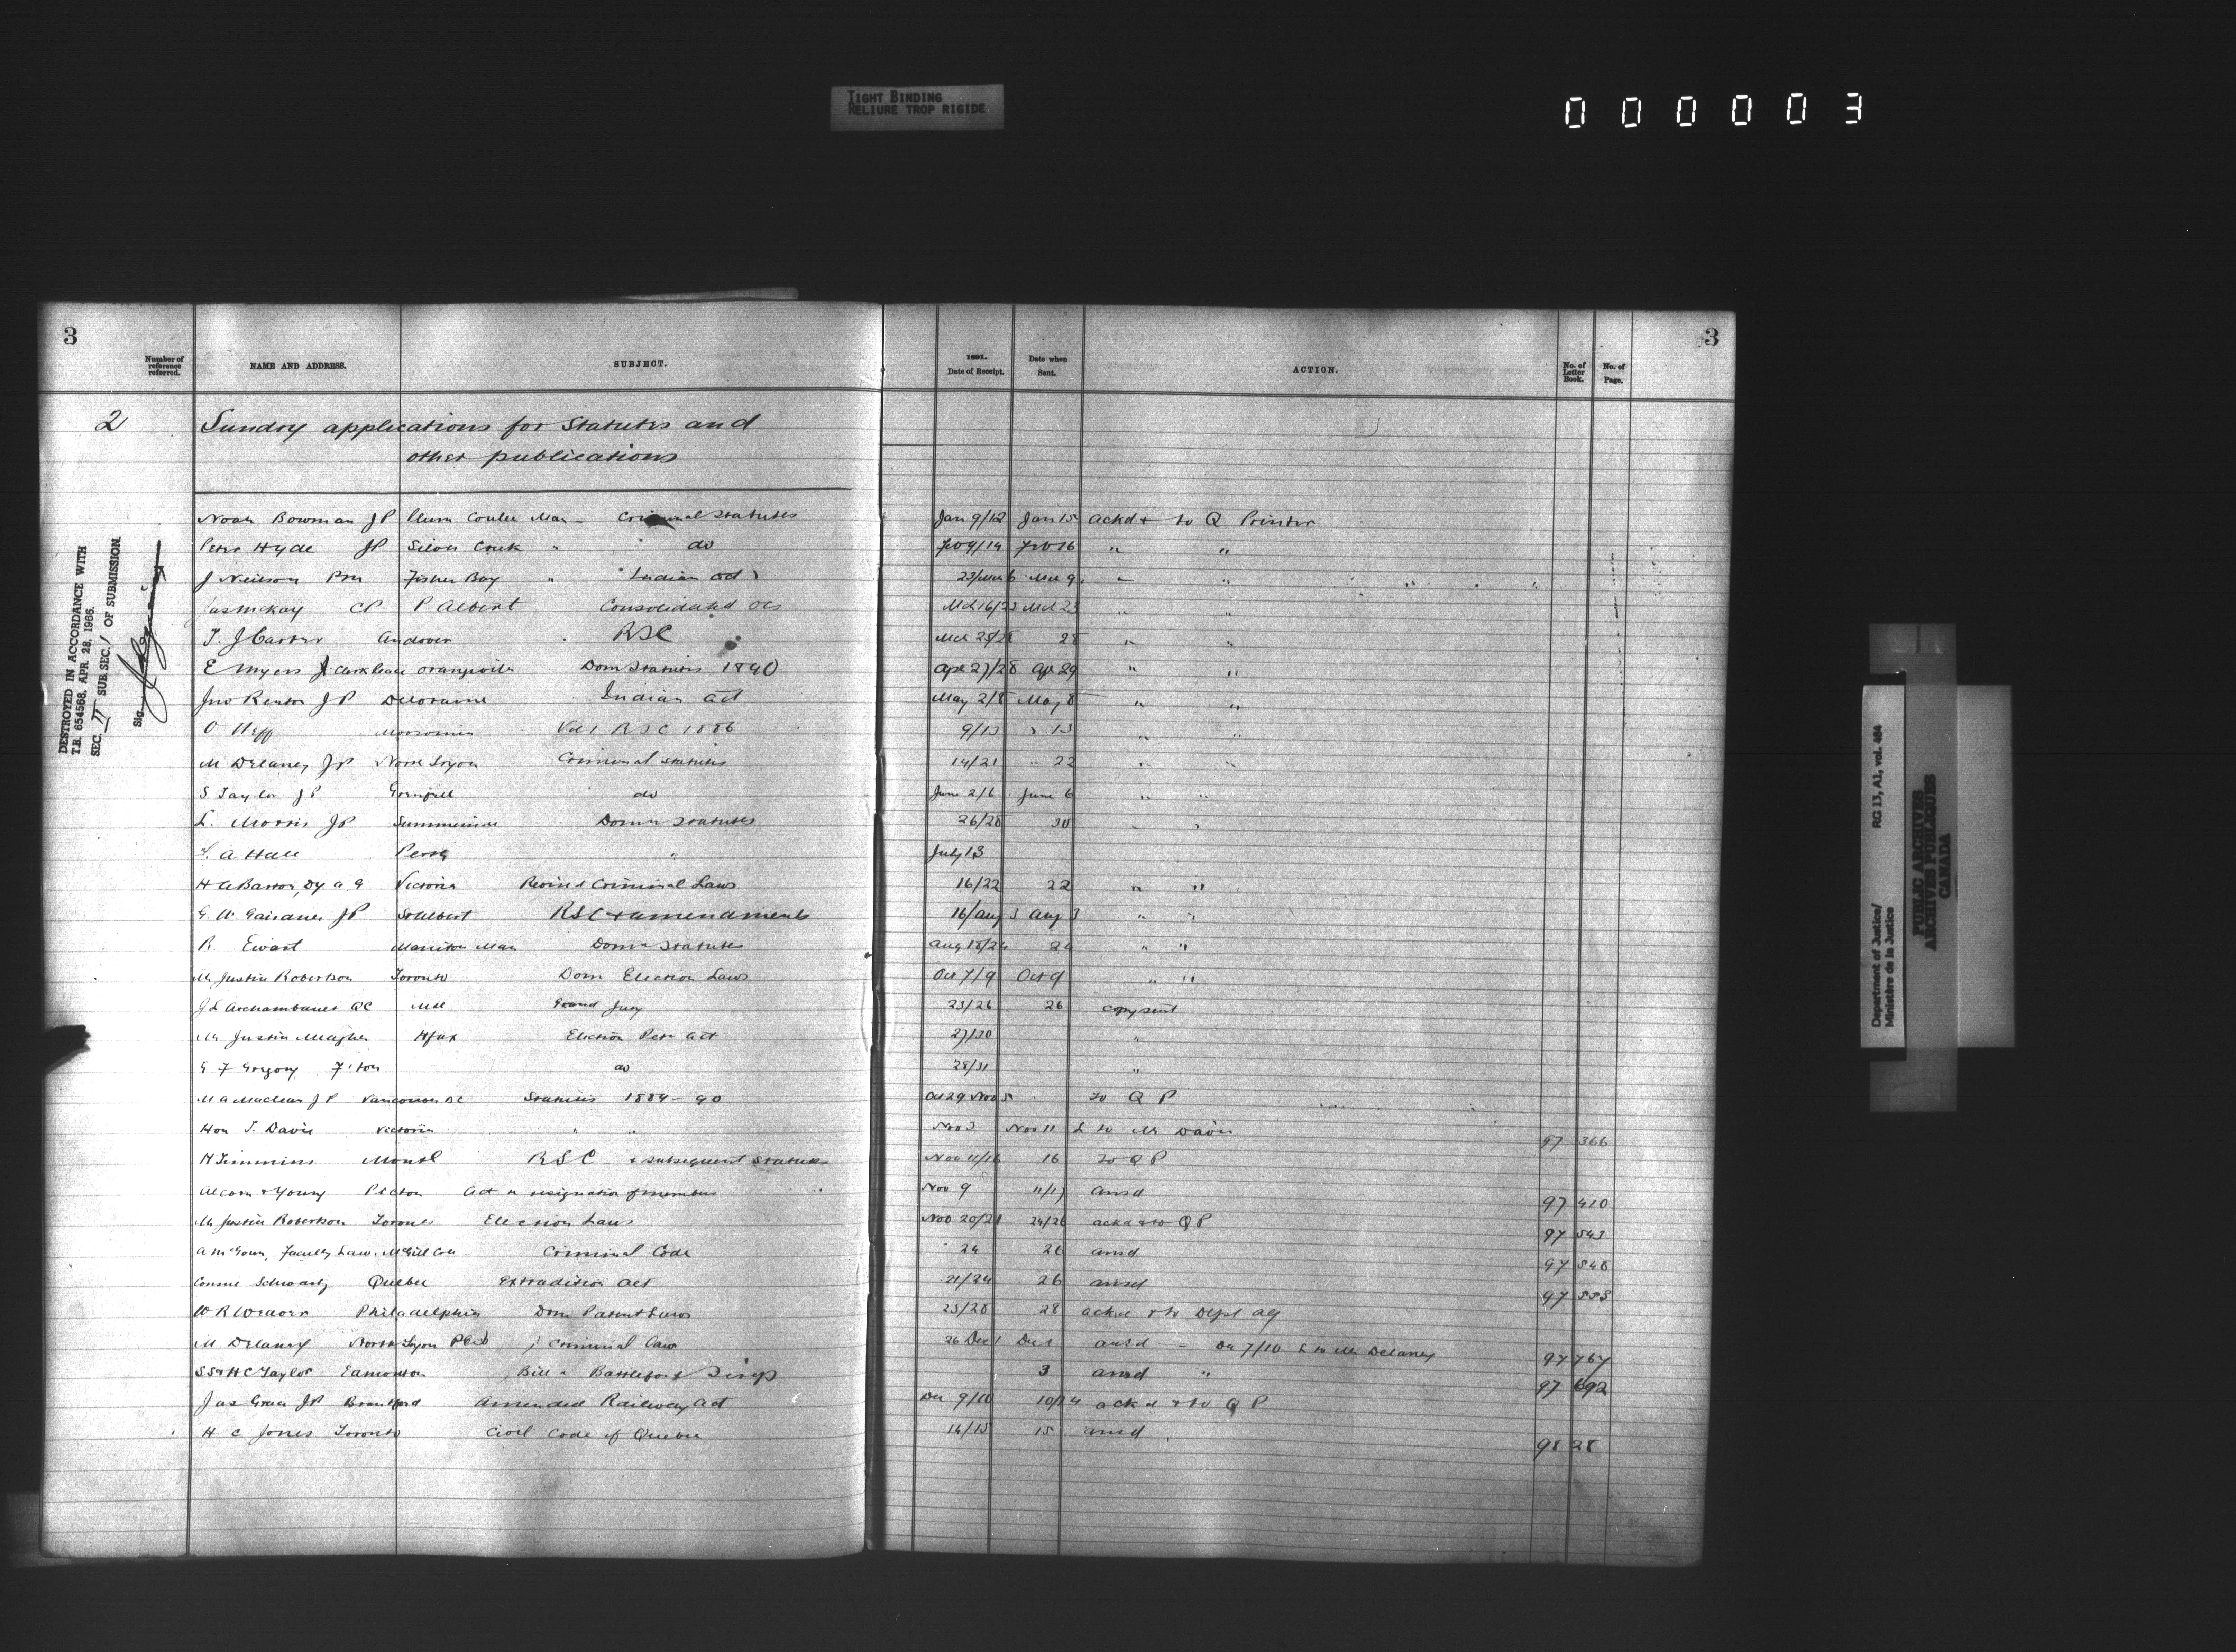 TIGHT BINDING
RELIURE TROP RIGIDE
000003
3
Number of reference referred.
NAME AND ADDRESS.
SUBJECT.
1891.
Date of Receipt.
Date when Sent.
ACTION.
No. of Letter Book.
No. of Page.
3
2 Sundry applications for Statutes and
other publications
Noah Bowman JP Plum Coulee Man Criminal Statutes Jan 9/12 Jan 15 ackd + to Q Printer
Peter Hyde JP Silver Creek " do Feb 9/14 Feb 16 " "
J Neilson Fisher Bay " Indian act 23/Mch 6 Mch 9 " "
Jas McKay CP P Albert Consolidated Mch 16/23 Mch 23 " "
T. J Carter Andover RSC Mch 25/28 28 " "
E Myers Orangeville Dom Statutes 1890 Apr 27/28 Ap 29 " "
Jno Renton JP Deloraine Indian act May 2/8 May 8 " "
O Neff Moosomin Vol 1 RSC 1886 9/13 " 13 " "
M Delaney JP North Tryon Criminal Statutes 14/21 " 22 " "
S Taylor JP Grenfell do June 2/6 June 6 " "
L. Morris JP Summerside Domn Statutes 26/28 30 " "
A Hall Perth " July 13
H A Barton, Dy A G Victoria Revised Criminal Laws 16/22 22 " "
G. W Gairdner JP St Albert RSC + amendments 16/Aug 3 Aug 3 " "
R. Ewart Manitou Man Domn Statutes Aug 18/24 24 " "
Mr Justice Robertson Toronto Dom Election Laws Oct 7/9 Oct 9 " "
J L Archambault QC Mtl Grand Jury 23/26 26 copy sent
Mr Justice Meagher Hfax Election Petn act 27/30 "
G F Gregory F'ton do 28/31 "
M A Maclean JP Vancouver BC Statutes 1889-90 Oct 29 Nov 5 to Q P
Hon T. Davie Victoria " " Nov 3 Nov 11 L to Mr Davie 97 366
H Timmins Montl RSC + subsequent Statutes Nov 11/16 16 to Q P
Alcorn & Young Picton Act re resignation of members Nov 9 11/17 ansd 97 410
Mr Justice Robertson Toronto Election Laws Nov 20/21 24/26 ackd + to Q P 97 543
A McGoun, Faculty Law, McGill Coll Criminal Code 24 26 ansd 97 548
Consul Schwartz Quebec Extradition act 21/24 26 ansd 97 553
W R Weaver Philadelphia Dom Patent Laws 25/28 28 ackd + to Dept Ag
M Delaney North Tryon PEI Criminal law 26 Dec 1 Dec 1 ansd - Dec 7/10 L to Mr Delaney 97 767
S S & H C Taylor Edmonton Bill " Battleford 3 ansd " 97 692
Jas Grace JP Brantford Amended Railway act Dec 9/10 10/14 ackd + to Q P
H C Jones Toronto Civil Code of Quebec 14/15 15 ansd 98 28
DESTROYED IN ACCORDANCE WITH
T.B. 654568, APR. 28, 1966.
SEC. II SUB.SEC. 1 OF SUBMISSION.
Sig.
Department of Justice/
Ministère de la Justice
RG 13, A1, vol. 484
PUBLIC ARCHIVES
ARCHIVES PUBLIQUES
CANADA